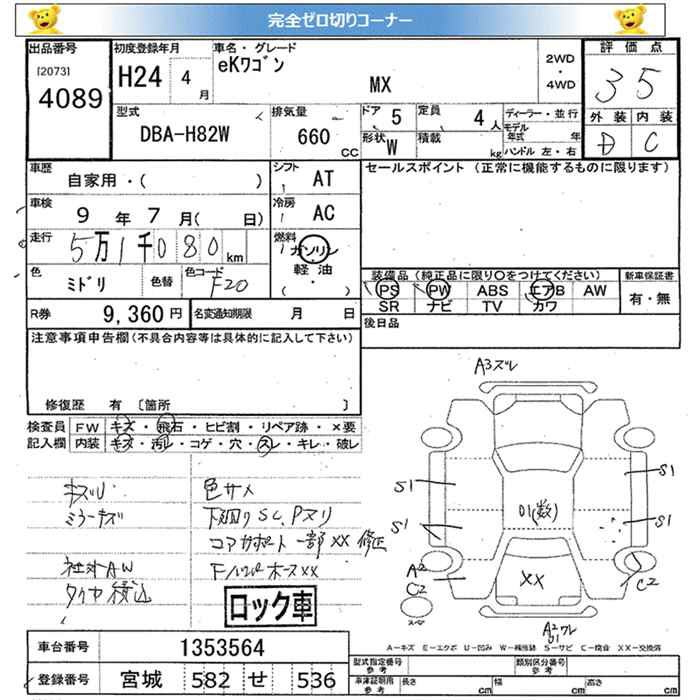 完全ゼロ切りコーナー
出品番号
[2073]
4089
初度登録年月
H24 4月
車名・グレード
eKワゴン
MX
2WD
・
4WD
評価点
3 5
外装 内装
D C
型式
DBA-H82W
排気量
660 CC
ドア 5
定員 4人
形状 W
積載 kg
ディーラー・並行
モデル年式 年
ハンドル 左・右
車歴
自家用・( )
シフト
AT
車検
9年7月( 日)
冷房
AC
走行
5万1千080km
燃料
ガソリン
軽油
( ・ )
色
ミドリ
色替
色コード
F20
R券 9,360円
名変通知期限 月 日
セールスポイント(正常に機能するものに限ります)
装備品(純正品に限り○をつけてください)
PS PW ABS エアB AW
SR ナビ TV カワ
新車保証書
有・無
後日品
注意事項申告欄(不具合内容等は具体的に記入して下さい)
修復歴 有 〔箇所 〕
検査員記入欄
FW キズ・飛石・ヒビ割・リペア跡・×要
内装 キズ・汚レ・コゲ・穴・スレ・キレ・破レ
色サメ
ミラーキズ
下廻りSC、Pヌリ
コアサポート一部XX 修正
社外AW
ロック車
A3ズレ
S1
S1
S1
S1
01(数)
XX
A2
C2
C2
A2
車台番号 1353564
登録番号 宮城 582 せ 536
A-キズ E-エクボ U-凹み W-補修跡 S-サビ C-腐食 XX-交換済
型式指定番号 参考
類別区分番号 参考
車庫証明用 参考 長さ cm 幅 cm 高さ cm